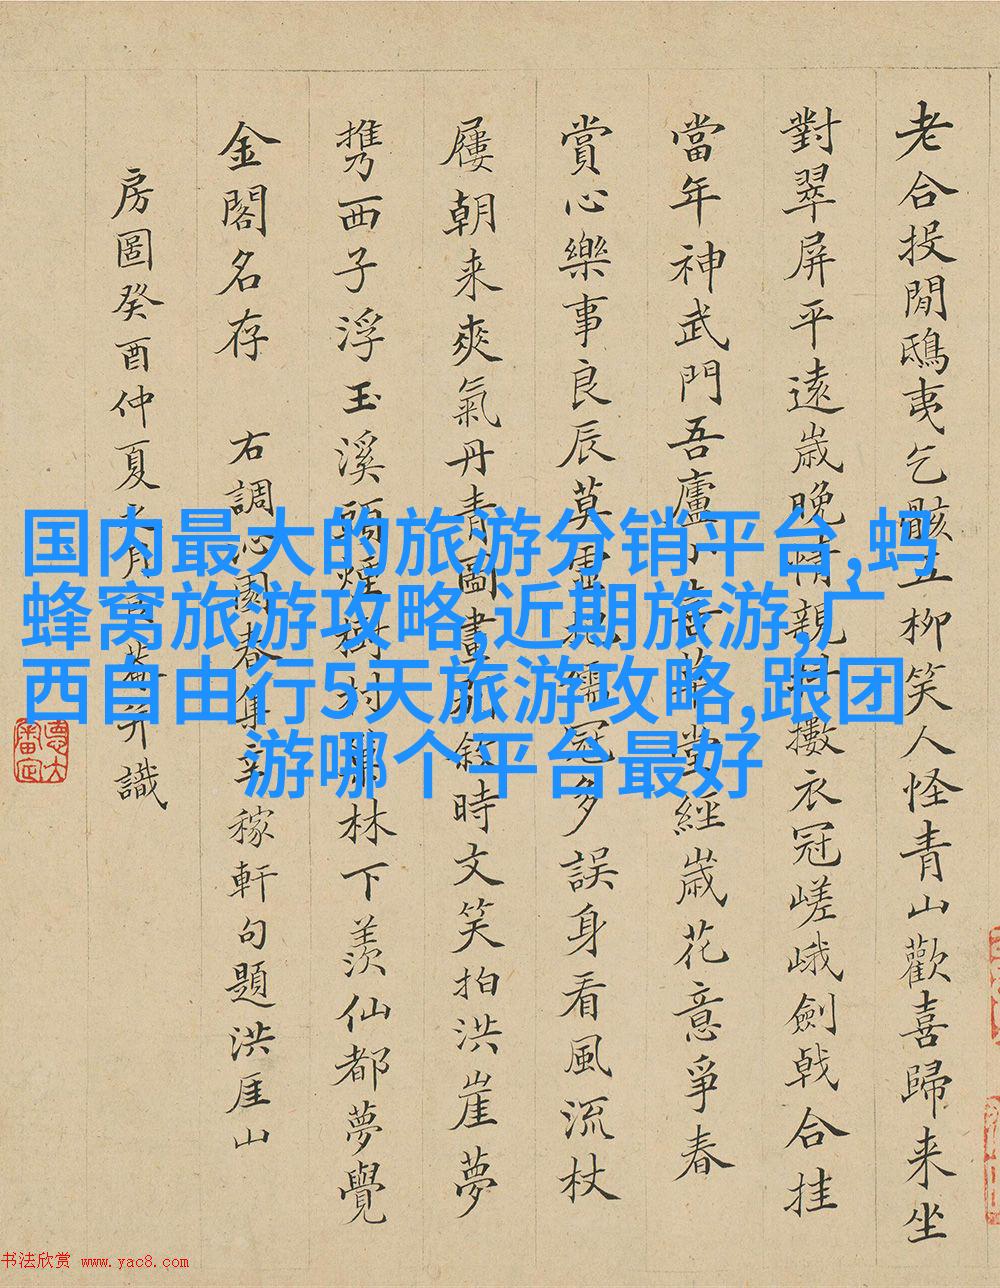 老合投閒鴟夷乞骸五柳笑人怪青山歡喜歸来坐
對翠屏平遠歳晚情親擻衣冠嵯峨劍戟合挂
當年神武門吾廬堂經歳花意爭春
賞心樂事良辰莫儒冠多誤身看風流杖
屨朝来爽氣丹青圖畫敘時文笑拍洪崖夢
携西子浮玉溪頭煙樹村林下羨仙都夢覺
金閣名存 右調沁園春集辛稼軒句題洪厓山
房圖癸酉仲夏之月并識
国内最大的旅游分销平台,蚂
蜂窝旅游攻略,近期旅游,广
西自由行5天旅游攻略,跟团
游哪个平台最好
书法欣赏 www.yac8.com